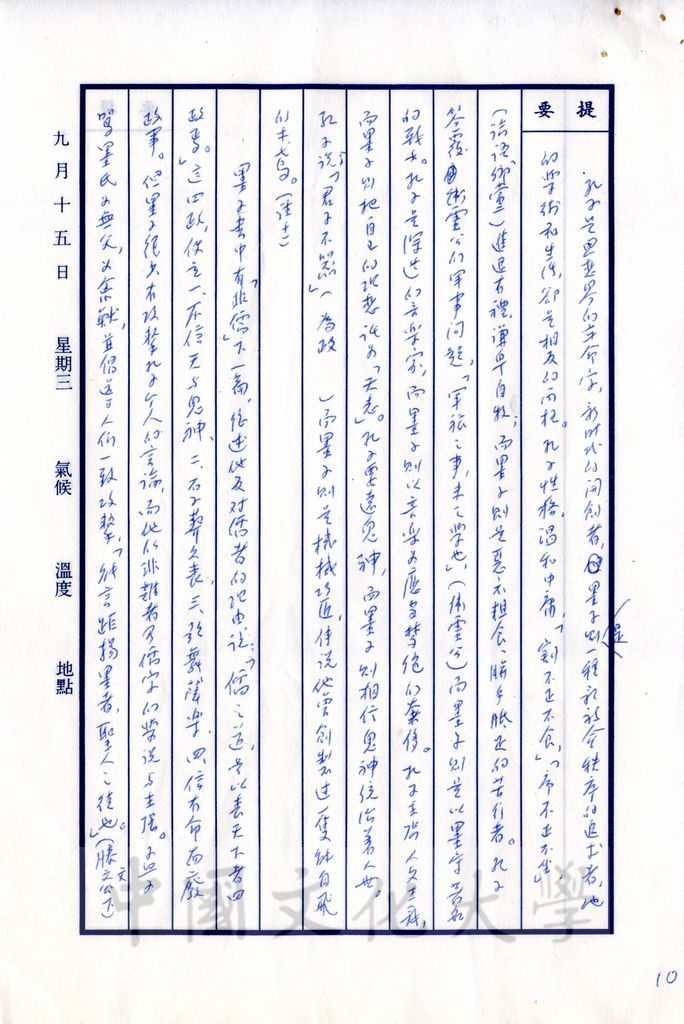 提要
孔子是思想界的革命家,新時代的開創者,墨子則是一種新社會秩序的追求者,他
的學術和生活,卻是相反的兩極。孔子性格,溫和中庸,「割不正不食,」「席不正不坐」
(論語鄉黨)進退有禮,謙卑自牧;而墨子則是惡衣粗食、胼手胝足的苦行者。孔子
答覆衛靈公的軍事問題,「軍旅之事,未之學也,」(衛靈公)而墨子則是以墨守著名
的戰士。孔子是深造的音樂家,而墨子則以音樂為應當禁絕的奢侈。孔子主張人文主義,
而墨子則把自己的理想託為「天志」。孔子要遠鬼神,而墨子則相信鬼神統治著人世。
孔子說:「君子不器」(為政 )而墨子則是機械巧匠,傳說他曾創製過一隻能自飛
的木鳶。
墨子書中有「非儒」下一篇,總述他反對儒者的理由說:「儒之道,足以喪天下者四
政焉。」這四政,便是一、不信天與鬼神,二、厚葬久喪,三、歌舞聲樂,四、信有命而廢
政事。但墨子很少有攻擊孔子個人的言論,而他的非難者乃儒家的學說與主張。孟子
罵墨氏為無父,為禽獸,並倡導人們一致攻擊,「能言距楊墨者,聖人之徒也。」(滕文公下)
九月十五日 星期三 氣候 溫度 地點
中國文化大學
10